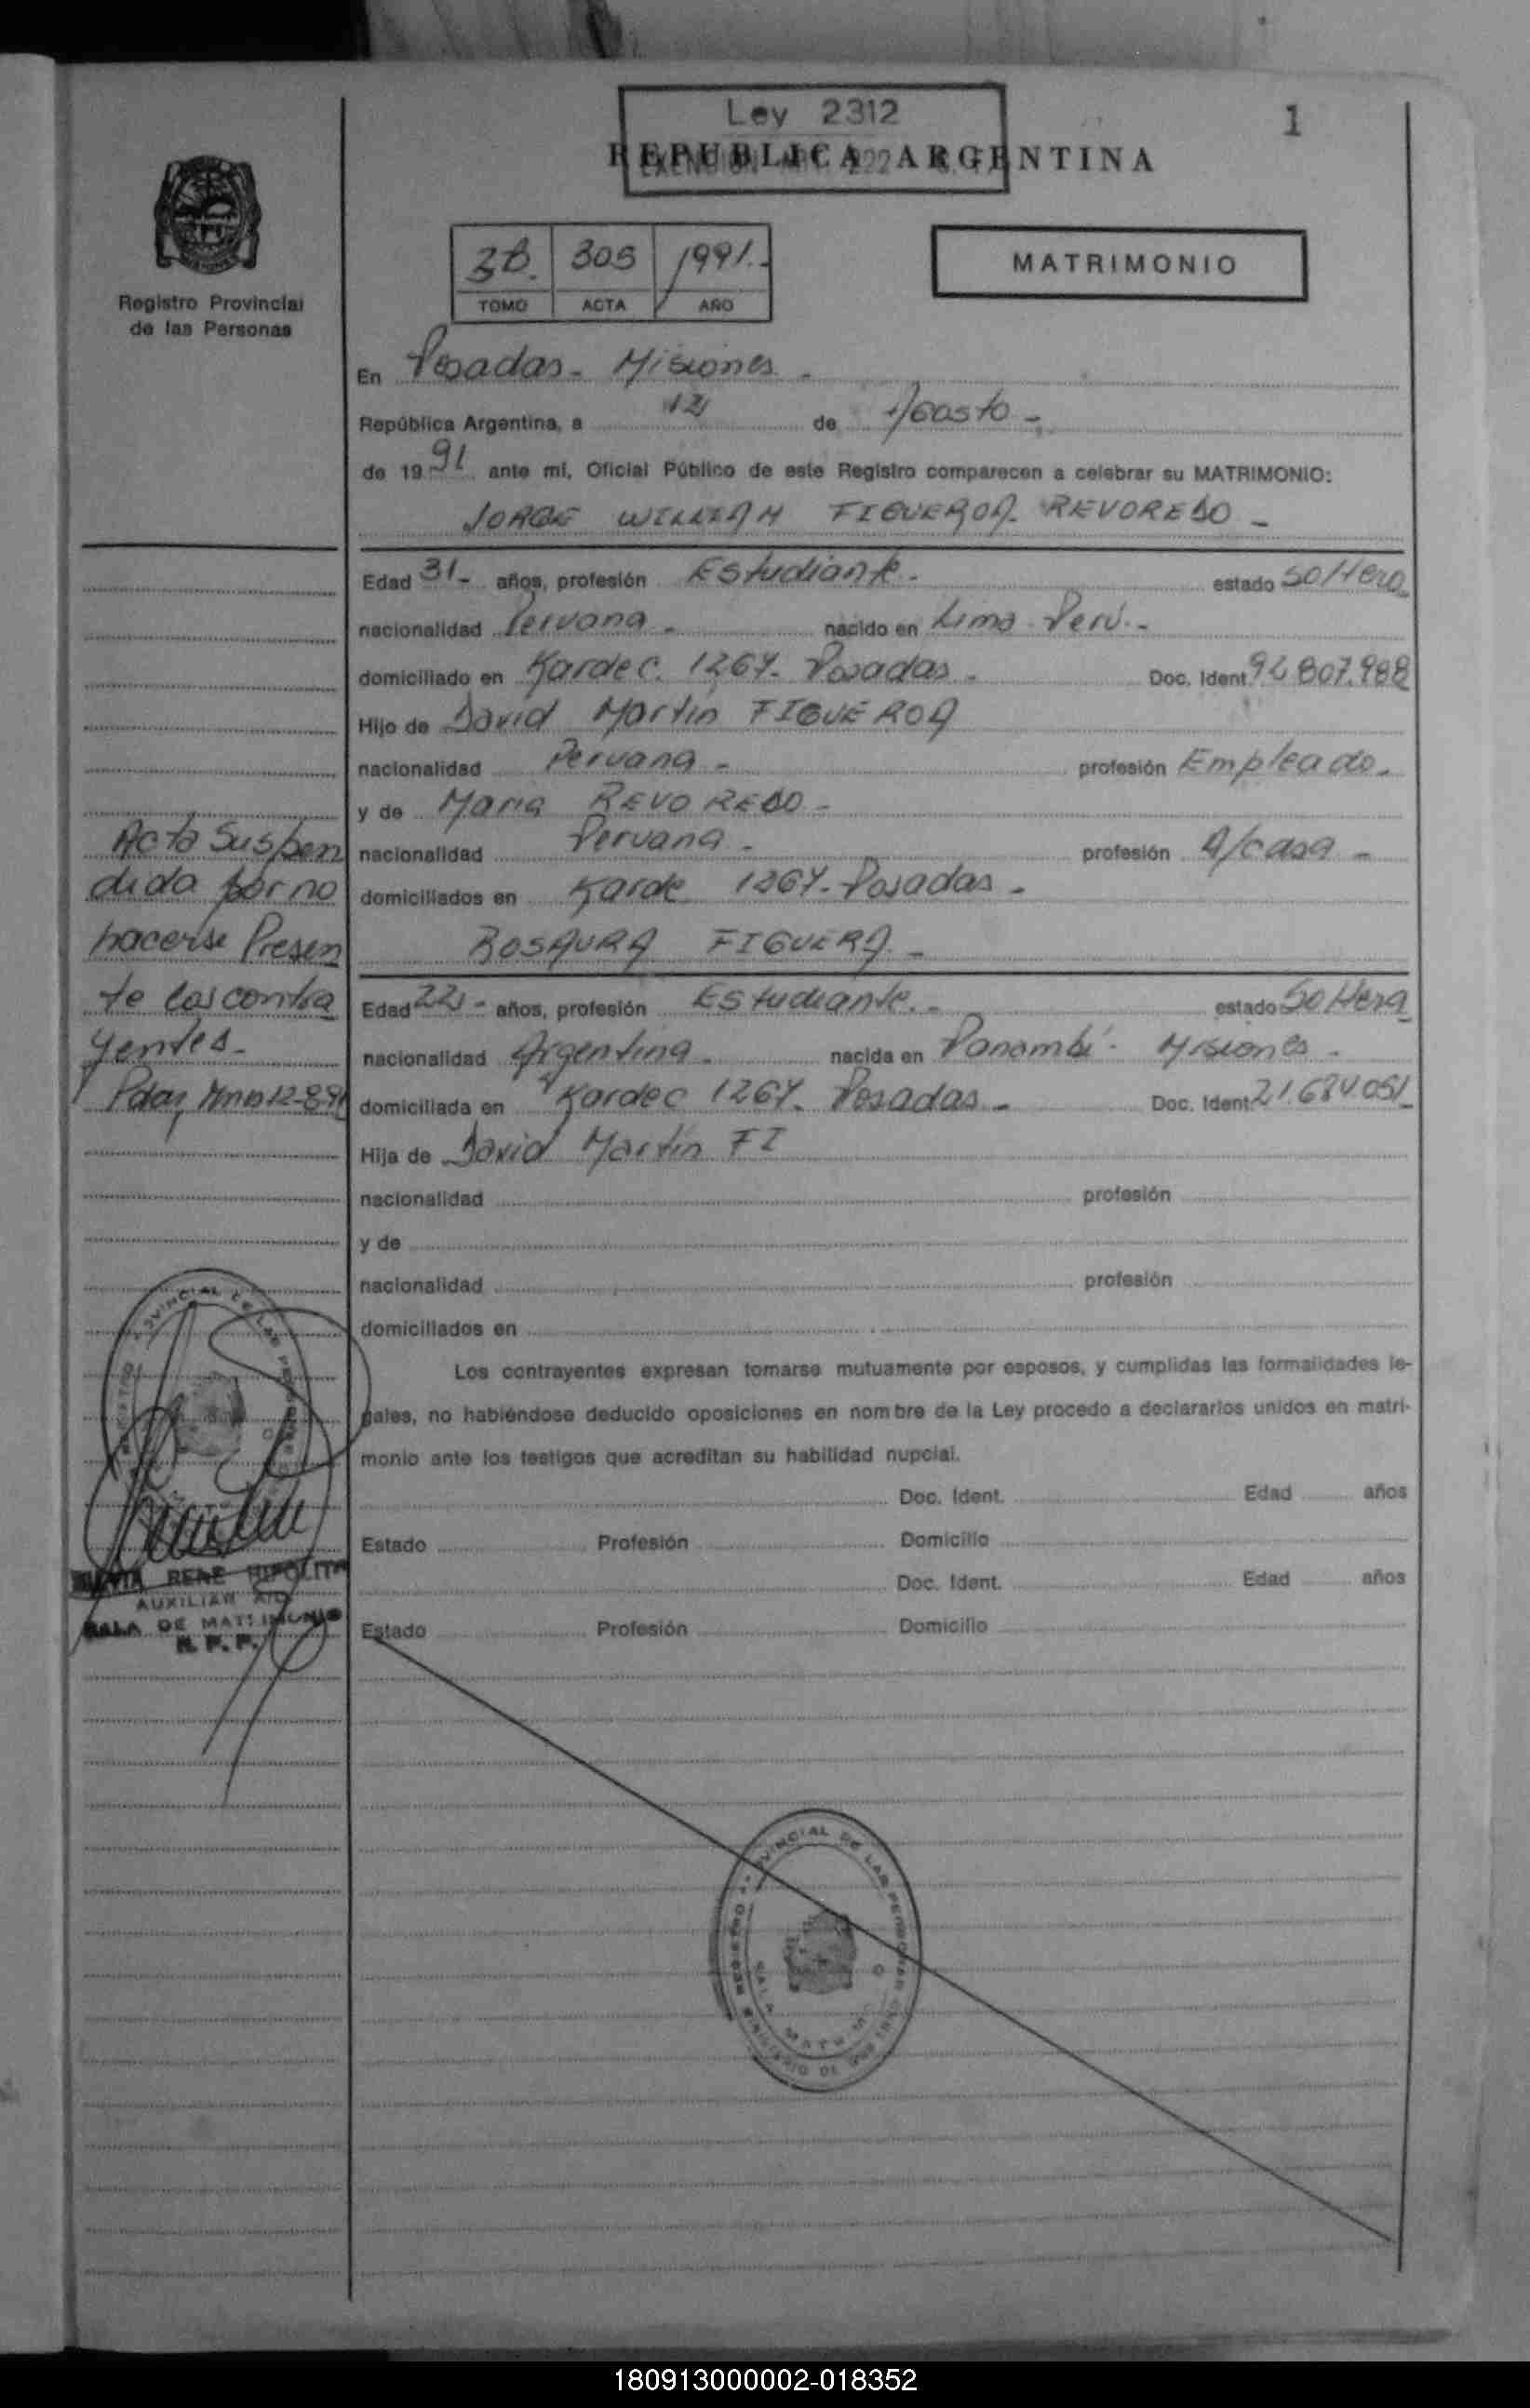 Ley 2312
REPUBLICA ARGENTINA
1
3B. 305 1991.-
TOMO ACTA AÑO
MATRIMONIO
Registro Provincial
de las Personas
En Posadas - Misiones -
República Argentina, a 12 de Agosto -
de 1991 ante mí, Oficial Público de este Registro comparecen a celebrar su MATRIMONIO:
JORGE WILLIAM FIGUEROA REVOREDO -
Edad 31- años, profesión Estudiante - estado Soltero
nacionalidad Peruana - nacido en Lima Perú.-
domiciliado en Kardec. 1267- Posadas - Doc. Ident. 92 807.988
Hijo de David Martin FIGUEROA
nacionalidad Peruana - profesión Empleado.
y de Maria REVOREDO -
nacionalidad Peruana - profesión A/casa -
domiciliados en Karde 1267- Posadas -
ROSAURA FIGUERA.-
Edad 22 - años, profesión Estudiante. - estado Soltera
nacionalidad Argentina. nacida en Panambí - Misiones -
domiciliada en Kardec 1267. Posadas - Doc. Ident. 21.684.051
Hija de David Martín FI
nacionalidad profesión
y de
nacionalidad profesión
domiciliados en
Los contrayentes expresan tomarse mutuamente por esposos, y cumplidas las formalidades le-
gales, no habiéndose deducido oposiciones en nombre de la Ley procedo a declararlos unidos en matri-
monio ante los testigos que acreditan su habilidad nupcial.
Doc. Ident. Edad años
Estado Profesión Domicilio
Doc. Ident. Edad años
Estado Profesión Domicilio
Acta Suspen
dida por no
hacerse Presen
te los contra
yentes -
Pdas, Mnes 12-8-91
RENE HIPOLITA
AUXILIAR
SALA DE MATRIMONIO
R. P. P.
180913000002-018352